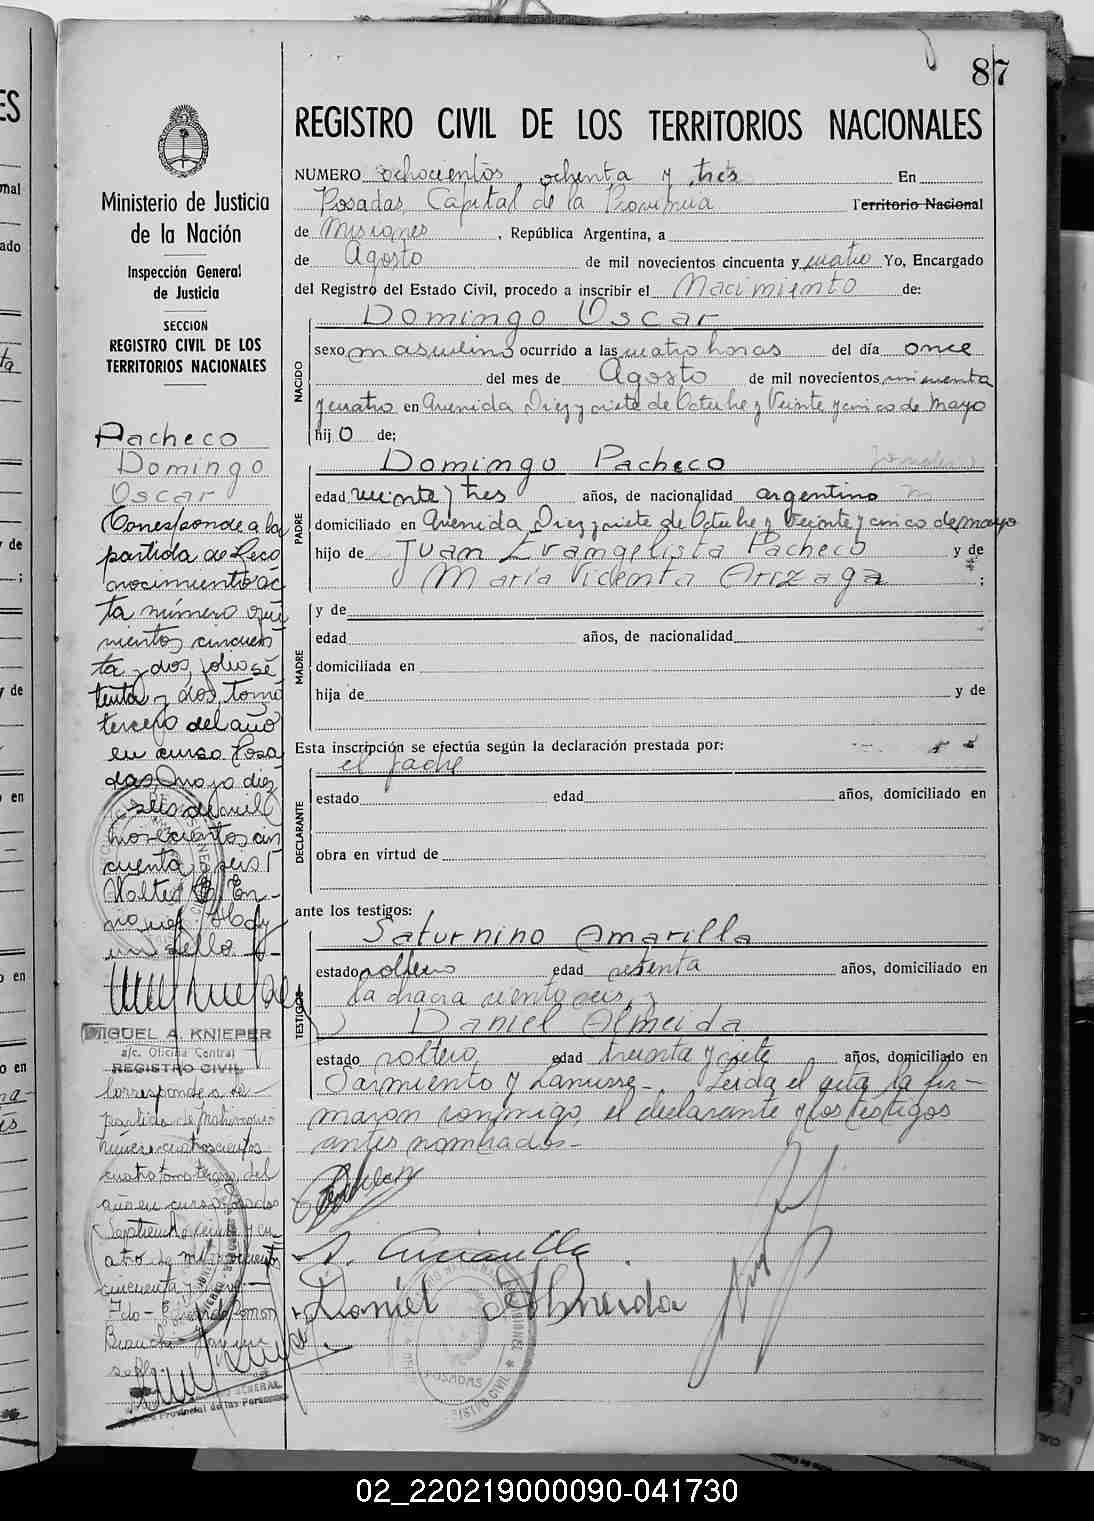 87
REGISTRO CIVIL DE LOS TERRITORIOS NACIONALES
Ministerio de Justicia
de la Nación
Inspección General
de Justicia
SECCION
REGISTRO CIVIL DE LOS
TERRITORIOS NACIONALES
Pacheco
Domingo
Oscar
Corresponde a la
partida de Reco
nocimiento ac
ta número qui
nientos cincuen
ta y dos, folio se
tenta y dos, tomo
tercero del año
en curso Posa
das, Mayo diez
seis de mil
novecientos cin
cuenta y seis
un sello
MIGUEL A. KNIEPER
a/c. Oficina Central
REGISTRO CIVIL
Corresponde a la
partida de matrimonio
número cuatrocientos
cuatro tomo tercero del
año en curso Posadas
Septiembre veinte y cu
atro de mil novecientos
cincuenta y
sello
Provincial de las Personas
NUMERO ochocientos ochenta y tres En
Posadas, Capital de la Provincia Territorio Nacional
de Misiones, República Argentina, a
de Agosto de mil novecientos cincuenta y cuatro Yo, Encargado
del Registro del Estado Civil, procedo a inscribir el Nacimiento de:
NACIDO
Domingo Oscar
sexo masculino ocurrido a las cuatro horas del día once
del mes de Agosto de mil novecientos cincuenta
y cuatro en Avenida Diez y siete de Octubre y Veinte y cinco de mayo
hijo de;
PADRE
Domingo Pacheco
edad veinte y tres años, de nacionalidad argentino
domiciliado en Avenida Diez y siete de Octubre y Veinte y cinco de mayo
hijo de Juan Evangelista Pacheco y de
María Vicenta Arizaga ;
MADRE
y de
edad años, de nacionalidad
domiciliada en
hija de y de
Esta inscripción se efectúa según la declaración prestada por:
el padre
DECLARANTE
estado edad años, domiciliado en
obra en virtud de
ante los testigos:
TESTIGOS
Saturnino Amarilla
estado soltero edad setenta años, domiciliado en
la chacra ciento seis, y
Daniel Almeida
estado soltero, edad treinta y siete años, domiciliado en
Sarmiento y Lanusse-. Leída el acta la fir-
maron conmigo, el declarante y los testigos
antes nombrados-
Daniel Almeida
POSADAS
02_220219000090-041730